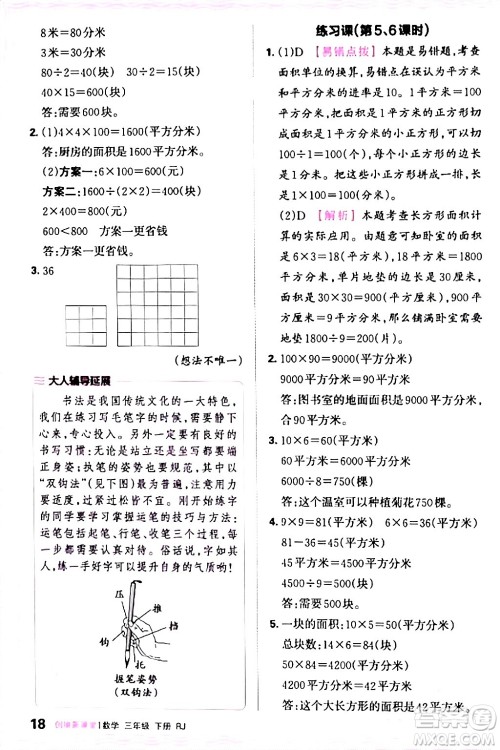 8米=80分米
3米=30分米
80÷2=40(块)  30÷2=15(块)
40×15=600(块)
答:需要600块。
2. (1)4×4×100=1600(平方分米)
答:厨房的面积是1600平方分米。
(2)方案一:6×100=600(元)
方案二:1600÷4=400(块)
2×400=800(元)
600<800  方案一更省钱
答:方案一更省钱。
3. 36
(想法不唯一)
大人辅导延展
书法是我国传统文化的一大特色,
我们在练习写毛笔字的时候,需要静下
心来,不急不躁。另外,还需要有良好的
书写习惯:无论是站立还是坐写都要端
正身姿;执笔的姿势也要规范,其中以
“双钩法”(见下图)最为普遍,应注意用
力要适度,坚持就是胜利。刚开始练字
的同学要学习掌握运笔的技巧与方法,
每一步都需要认真对待。俗话说,字如其
人,练一手好字可以提升自己的气质哟!
压
推
钩
挡
托
握笔姿势
(双钩法)
18 创维新课堂|数学 三年级 下册 RJ
练习课(第5、6课时)
1. (1)D [易错点拨]本题是易错题,考查
面积单位的换算,易错点在误认为平方米
和平方分米的进率是10。1平方米=100
平方分米,所以1平方米的正方形剪成面
积是1平方分米的小正方形,可以剪成
100个,每个小正方形的边长是1分米,把
这些小正方形拼成一排,长100分米。
(2)D [解析]本题考查长方形面积计
算的实际应用。由图可知卧室的面积是
6×3=18(平方米),18平方米=1800
平方分米,单片地垫的面积是3×3=
9(平方分米),那么铺满卧室需要地垫
1800÷9=200(片)。
2. 100×90=9000(平方分米)
9000平方分米=90平方米
答:图书室的地面面积是9000平方分
米,合90平方米。
3. 10×6=60(平方米)
60平方米=6000平方分米
6000÷8=750(棵)
答:这个温室可以种植菊花750棵。
4. 9×9=81(平方米)  6×6=36(平方米)
81-36=45(平方米)
45平方米=4500平方分米
4500÷9=500(块)
答:需要500块。
5. 一块的面积:10×5=50(平方分米)
总块数:14×6=84(块)
84×50=4200(平方分米)
4200平方分米=42平方米
答:这个大长方形的面积是42平方米。